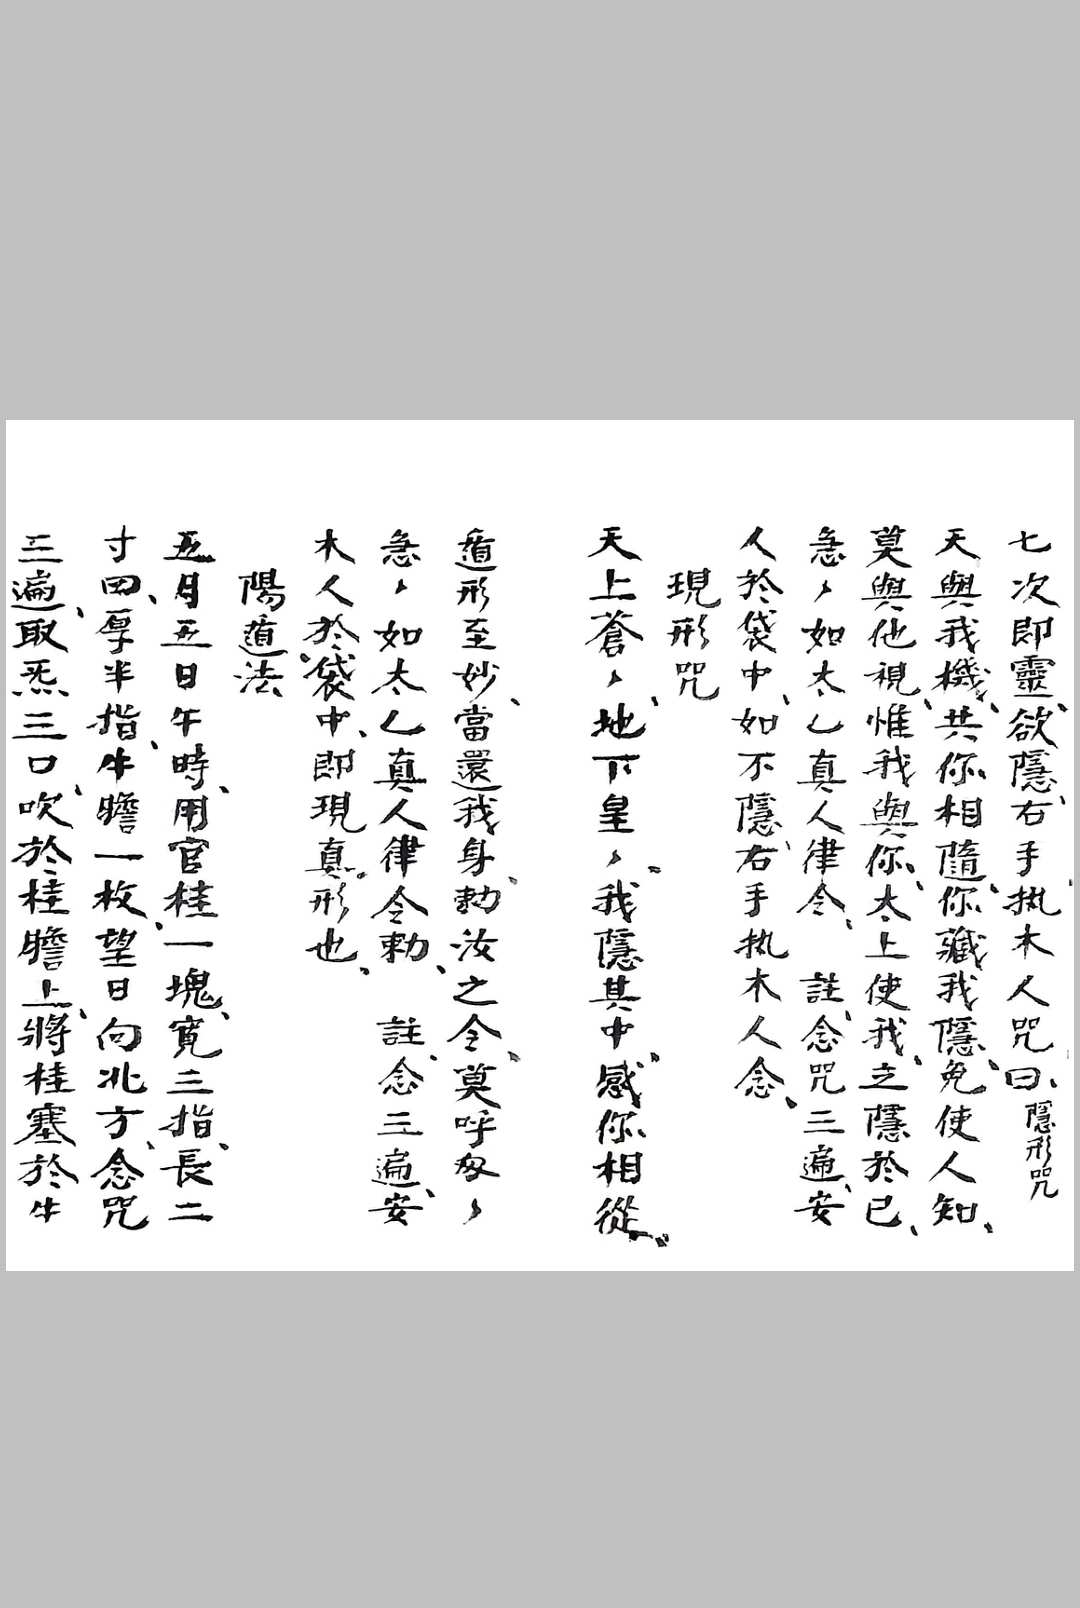 七次即靈、欲隱、右手执木人咒曰、隱形咒
天與我機、共你相隨、你藏我隱、免使人知、
莫與他視、惟我與你、太上使我、立隱於已、
急〻如太乙真人律令、 註、念咒三遍、安
人於袋中、如不隱、右手执木人念、
現形咒
天上蒼〻、地下皇〻、我隱其中、感你相從、
遁形至妙、當還我身、勅汝之令、莫呼匆〻
急〻如太乙真人律令勅、 註、念三遍、安
木人於袋中、即現真形也、
陽遁法
五月五日午時、用官桂一塊、寬三指、長二
寸四、厚半指、牛膽一枚、望日向北方、念咒
三遍、取炁三口、吹於桂膽上、將桂塞於牛